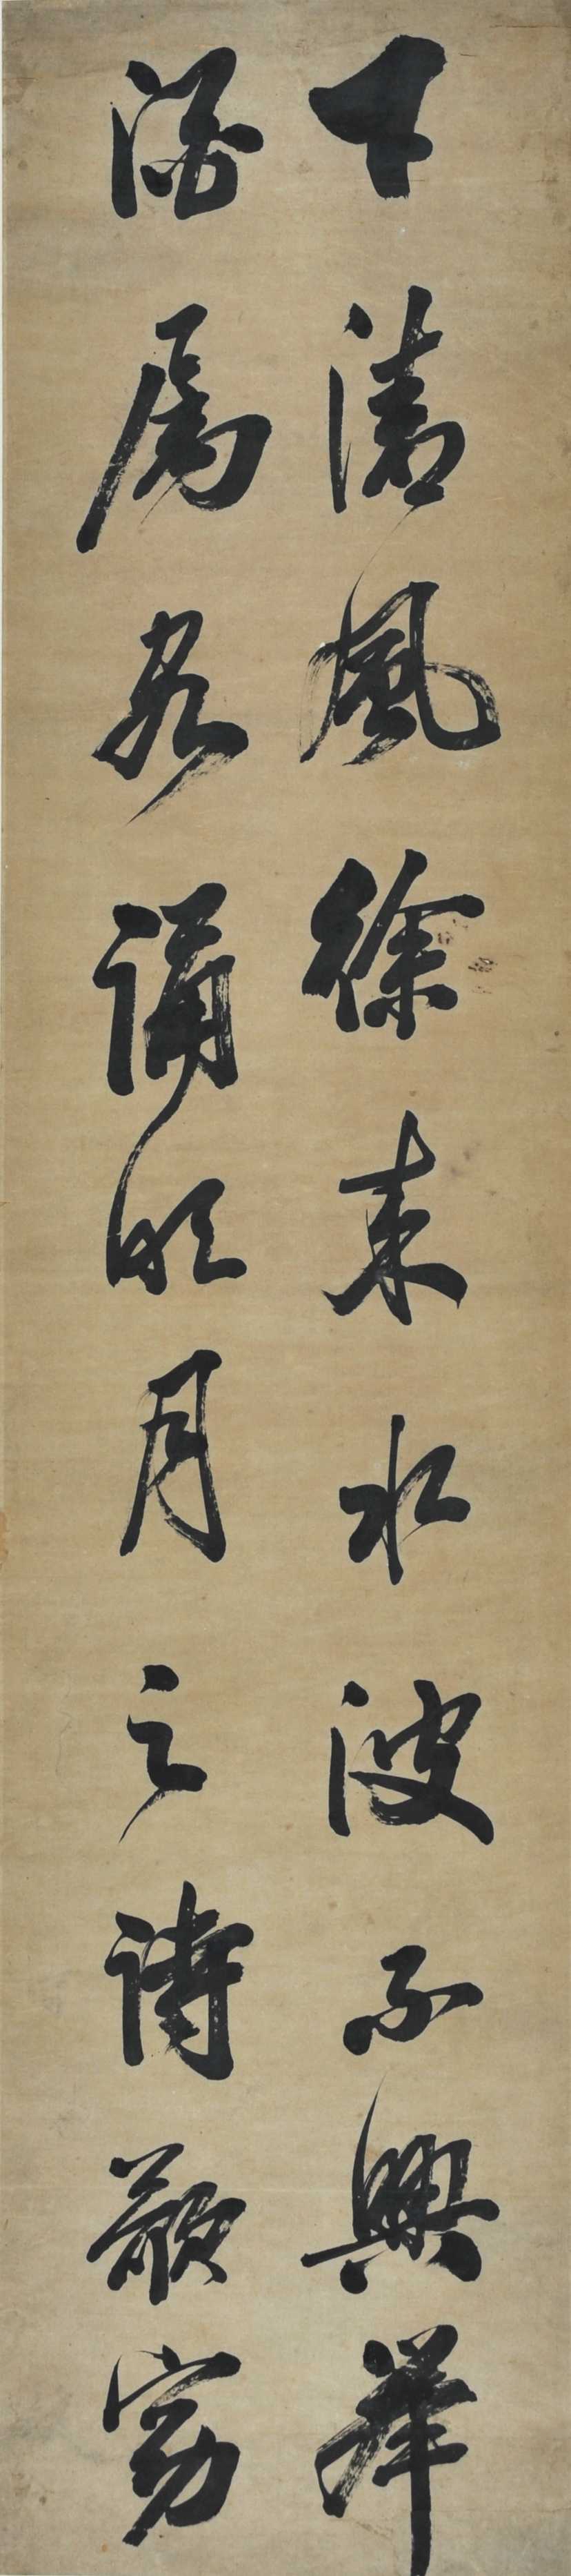 下清風徐來水波不興舉
酒屬客誦明月之詩歌窈